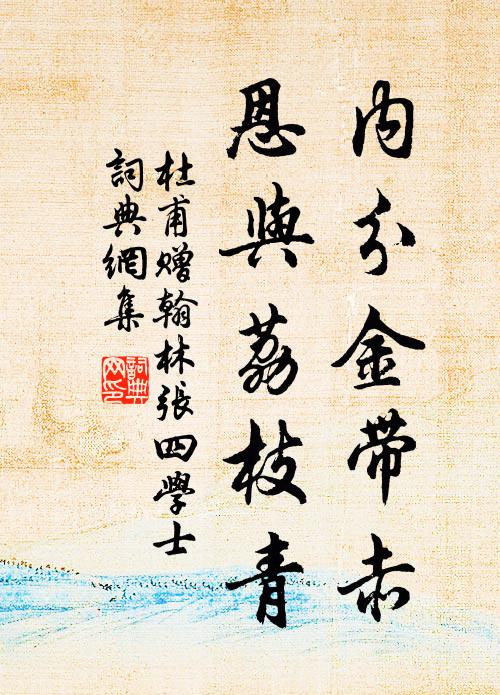 内分金带赤
恩與荔枝青
杜甫赠翰林張四學士
詞典網集
詞典网印